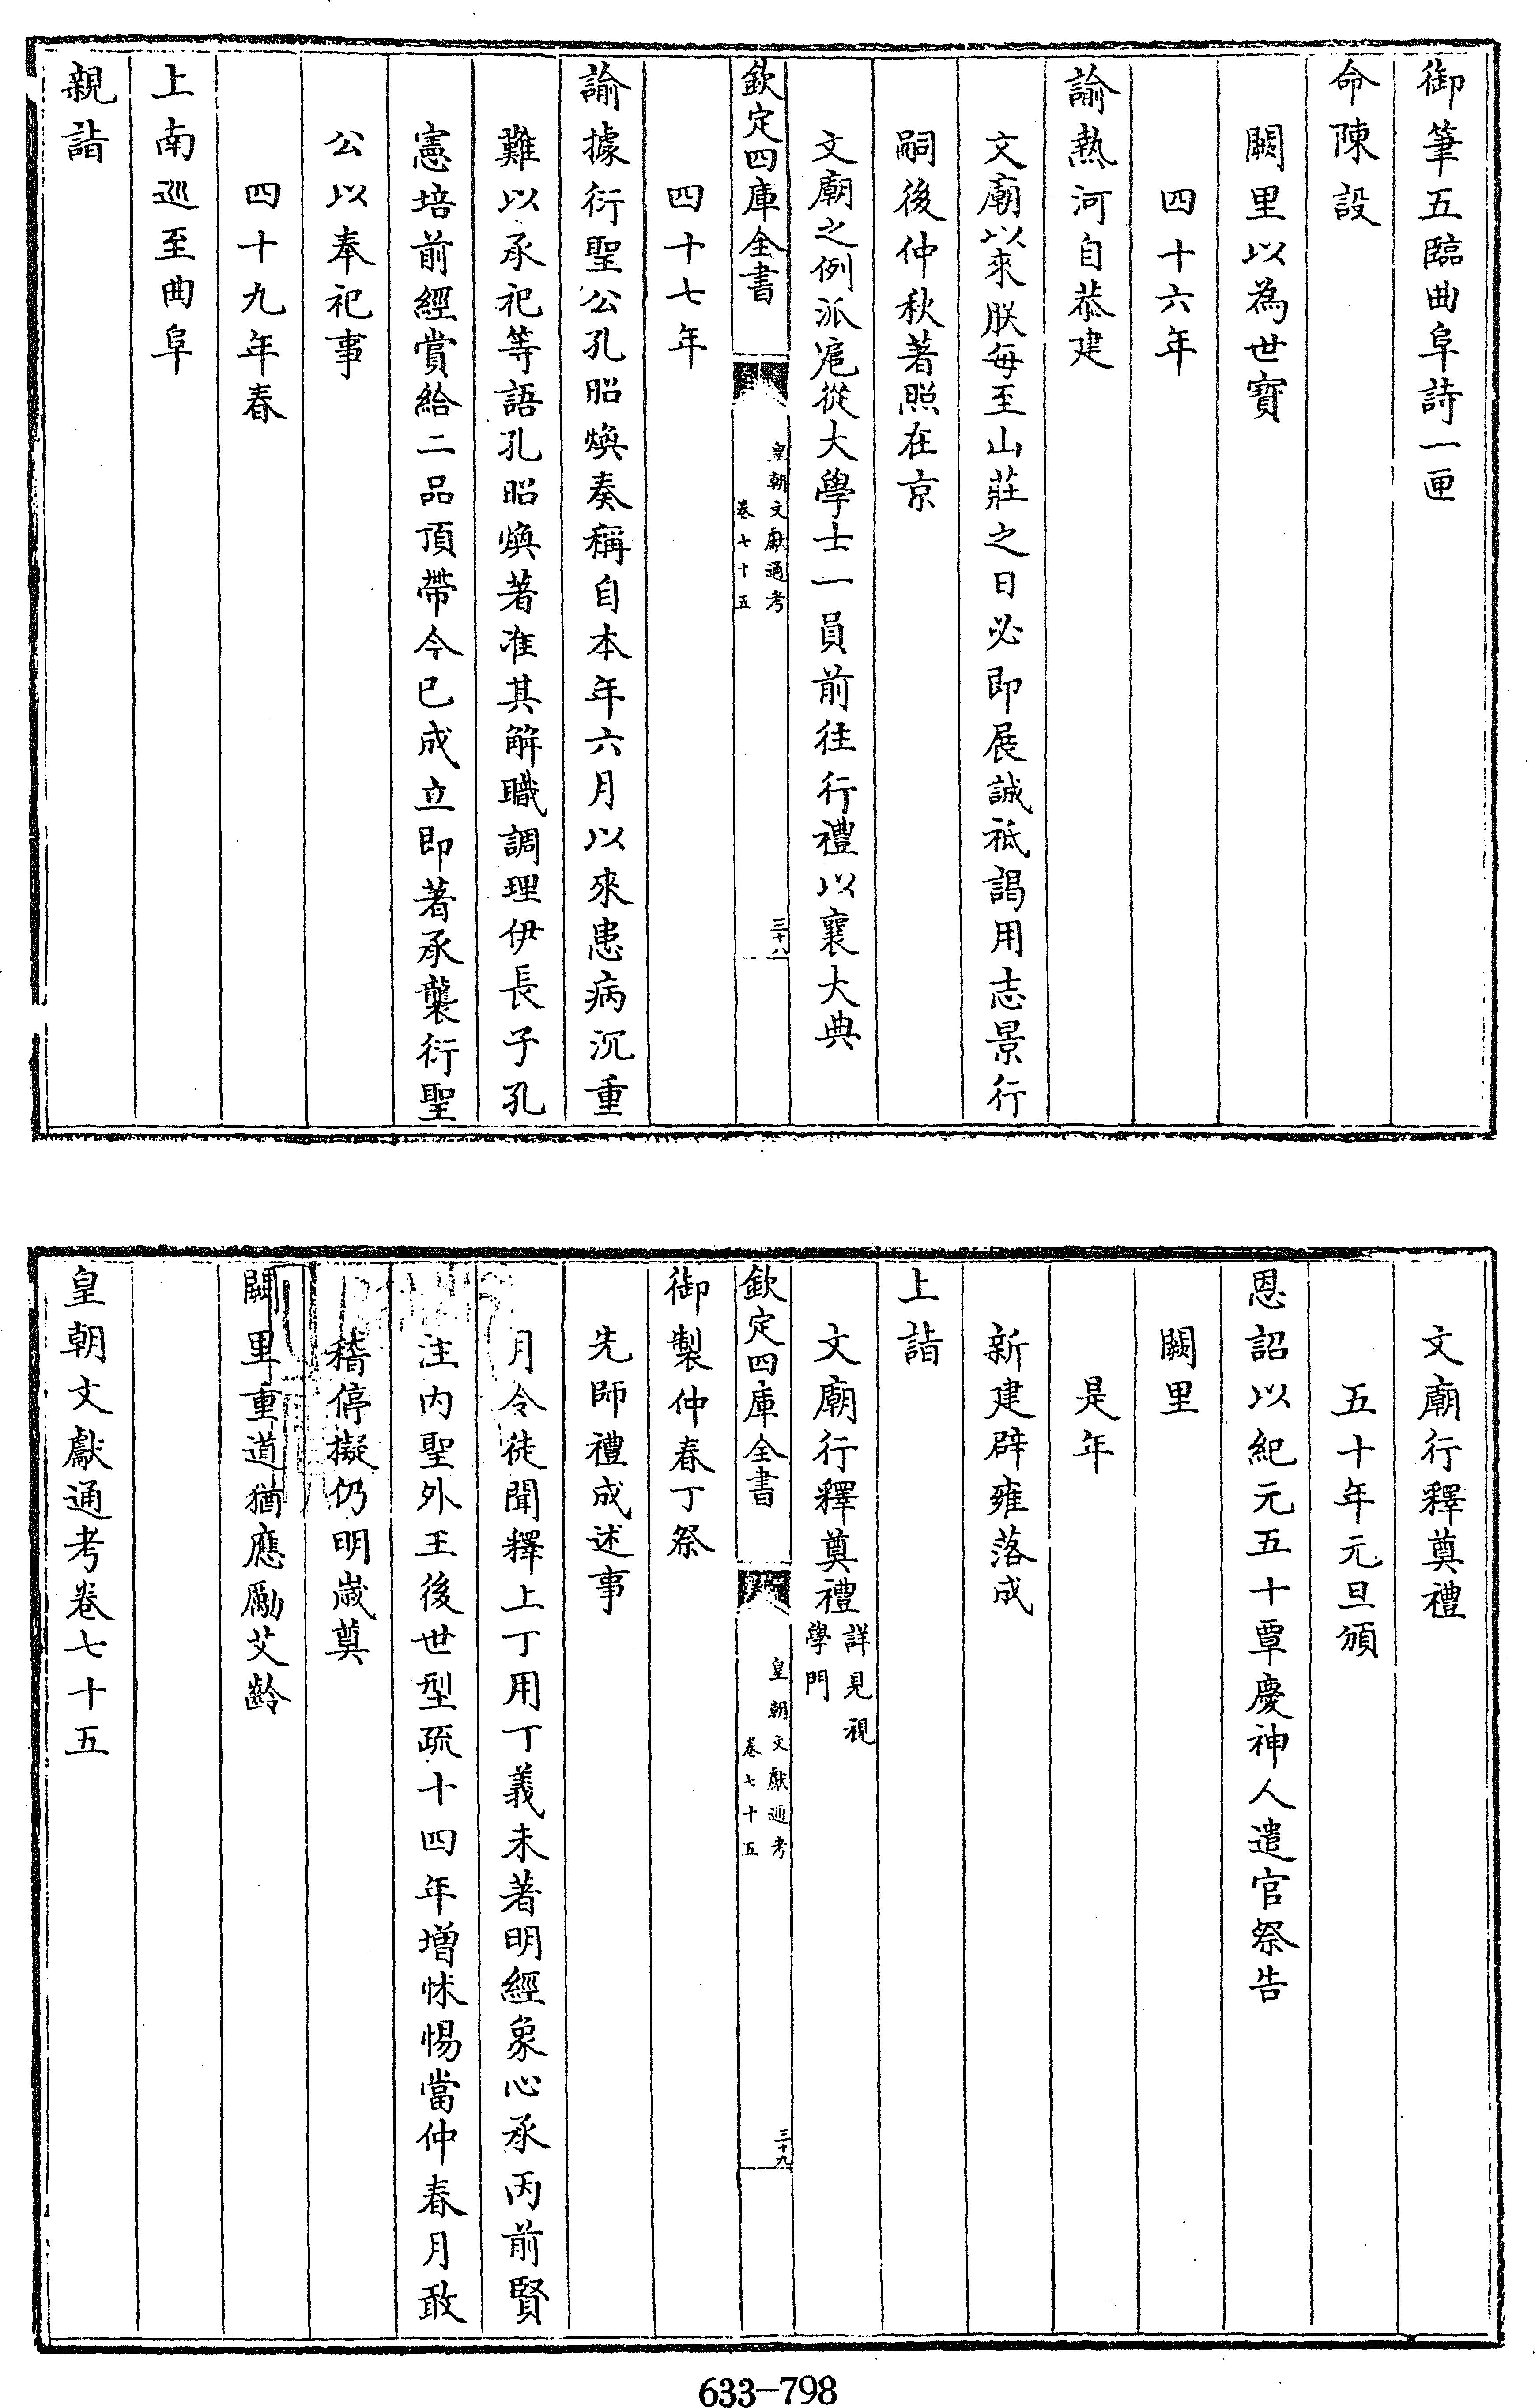 御筆五臨曲阜詩一匣
命陳設
闕里以為世寶
四十六年
諭熱河自恭建
文廟以來朕每至山莊之日必即展誠祗謁用志景行
嗣後仲秋著照在京
文廟之例派扈從大學士一員前往行禮以襄大典
欽定四庫全書
皇朝文獻通考
卷七十五
三十八
四十七年
諭據衍聖公孔昭煥奏稱自本年六月以來患病沉重
難以承祀等語孔昭煥著准其解職調理伊長子孔
憲培前經賞給二品頂帶今已成立即著承襲衍聖
公以奉祀事
四十九年春
上南巡至曲阜
親詣
文廟行釋奠禮
五十年元旦頒
恩詔以紀元五十覃慶神人遣官祭告
闕里
是年
新建辟雍落成
上詣
文廟行釋奠禮詳見視
學門
欽定四庫全書
皇朝文獻通考
卷七十五
三十九
御製仲春丁祭
先師禮成述事
月令徒聞釋上丁用丁義未著明經象心承丙前賢
注内聖外王後世型疏十四年增怵惕當仲春月敢
稽停擬仍明歲奠
闕里重道猶應勵艾齡
皇朝文獻通考卷七十五
633-798